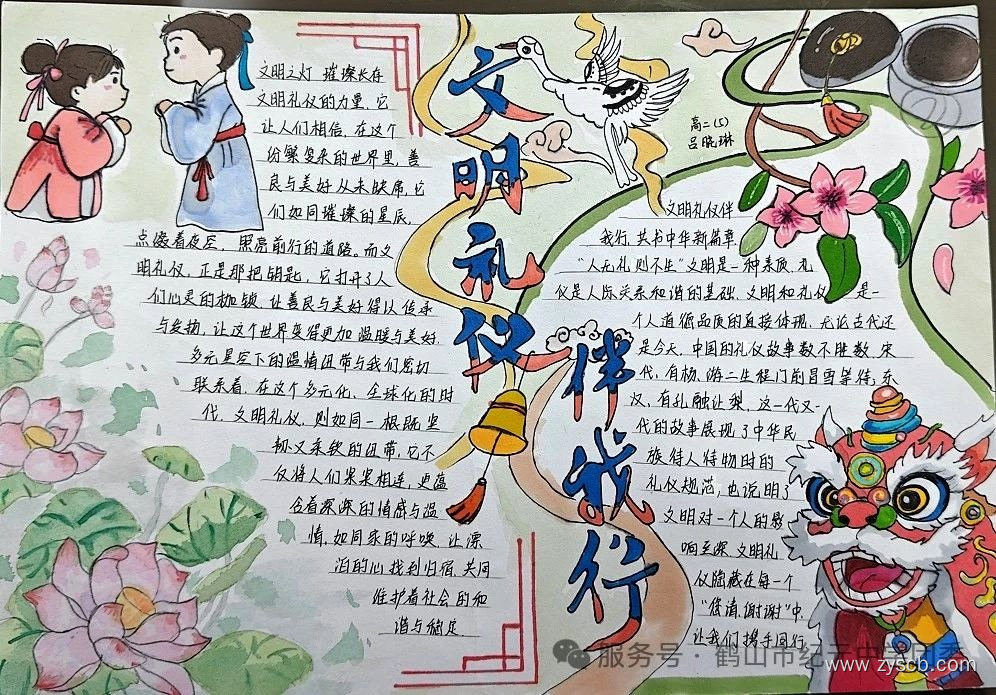 文明礼仪
伴我行
高二(5)
吕晓琳
文明之灯 璀璨长存
文明礼仪的力量，它
让人们相信，在这个
纷繁复杂的世界里，善
良与美好从未缺席，它
们如同璀璨的星辰，
点缀着夜空，照亮前行的道路。而文
明礼仪，正是那把钥匙，它打开了人
们心灵的枷锁，让善良与美好得以传承
与发扬，让这个世界变得更加温暖与美好，
多元星空下的温情纽带与我们密切
联系着，在这个多元化、全球化的时
代，文明礼仪，则如同一根既坚
韧又柔软的纽带，它不
仅将人们紧紧相连，更蕴
含着深深的情感与温
情，如同家的呼唤，让漂
泊的心找到归宿，共同
维护着社会的和
谐与稳定
文明礼仪伴
我行，共书中华新篇章，
“人无礼则不生”文明是一种素质，礼
仪是人际关系和谐的基础，文明和礼仪是一
个人道德品质的直接体现，无论古代还
是今天，中国的礼仪故事数不胜数，宋
代，有杨、游二生程门前冒雪等待，东
汉，有孔融让梨，这一代又一
代的故事展现了中华民
族待人待物时的
礼仪规范，也说明了
文明对一个人的影
响至深，文明礼
仪隐藏在每一个
“您请，谢谢”中，
让我们携手同行
服务号·鹤山市纪元中学团委
www.zyscb.com